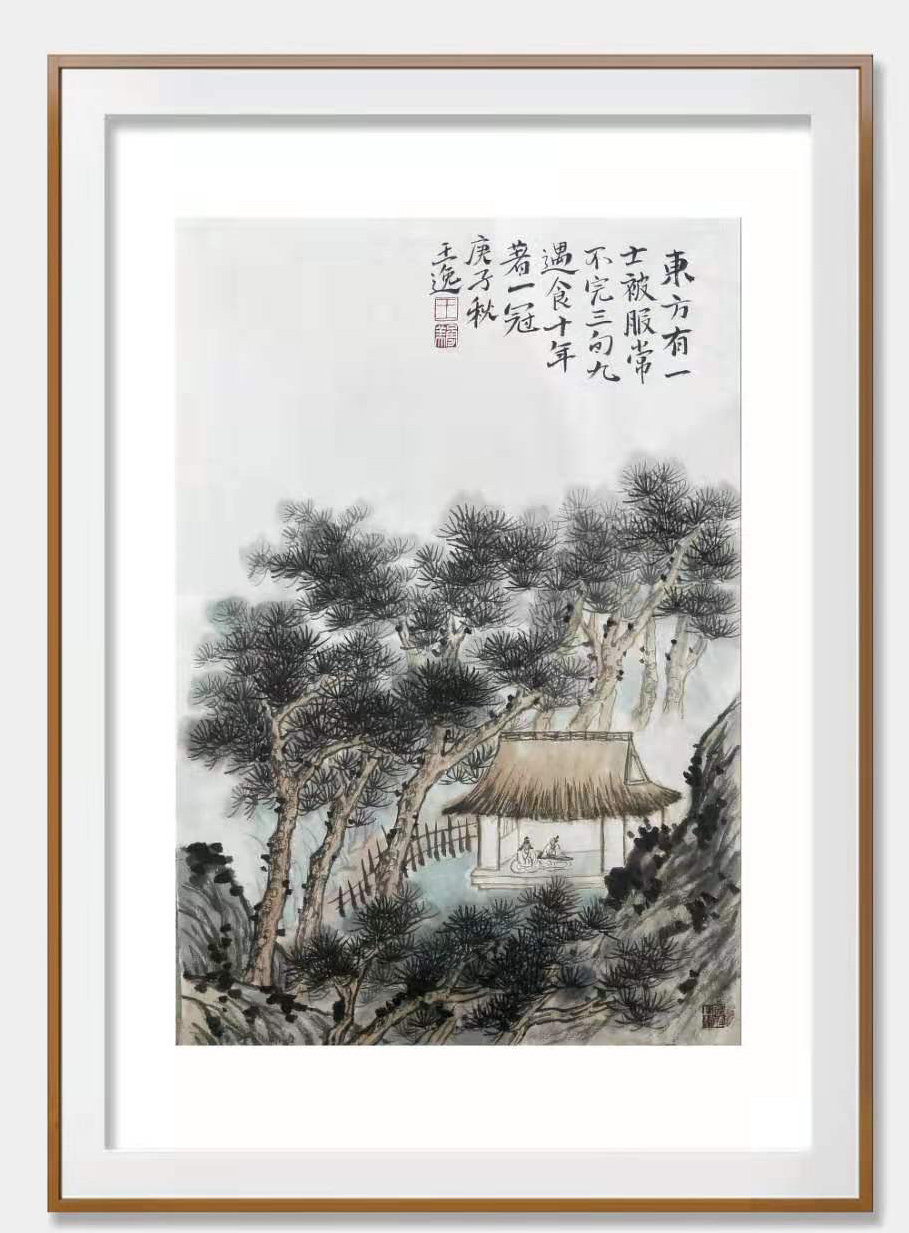 東方有一
士被服常
不完三旬九
遇食十年
著一冠
庚子秋
王逸